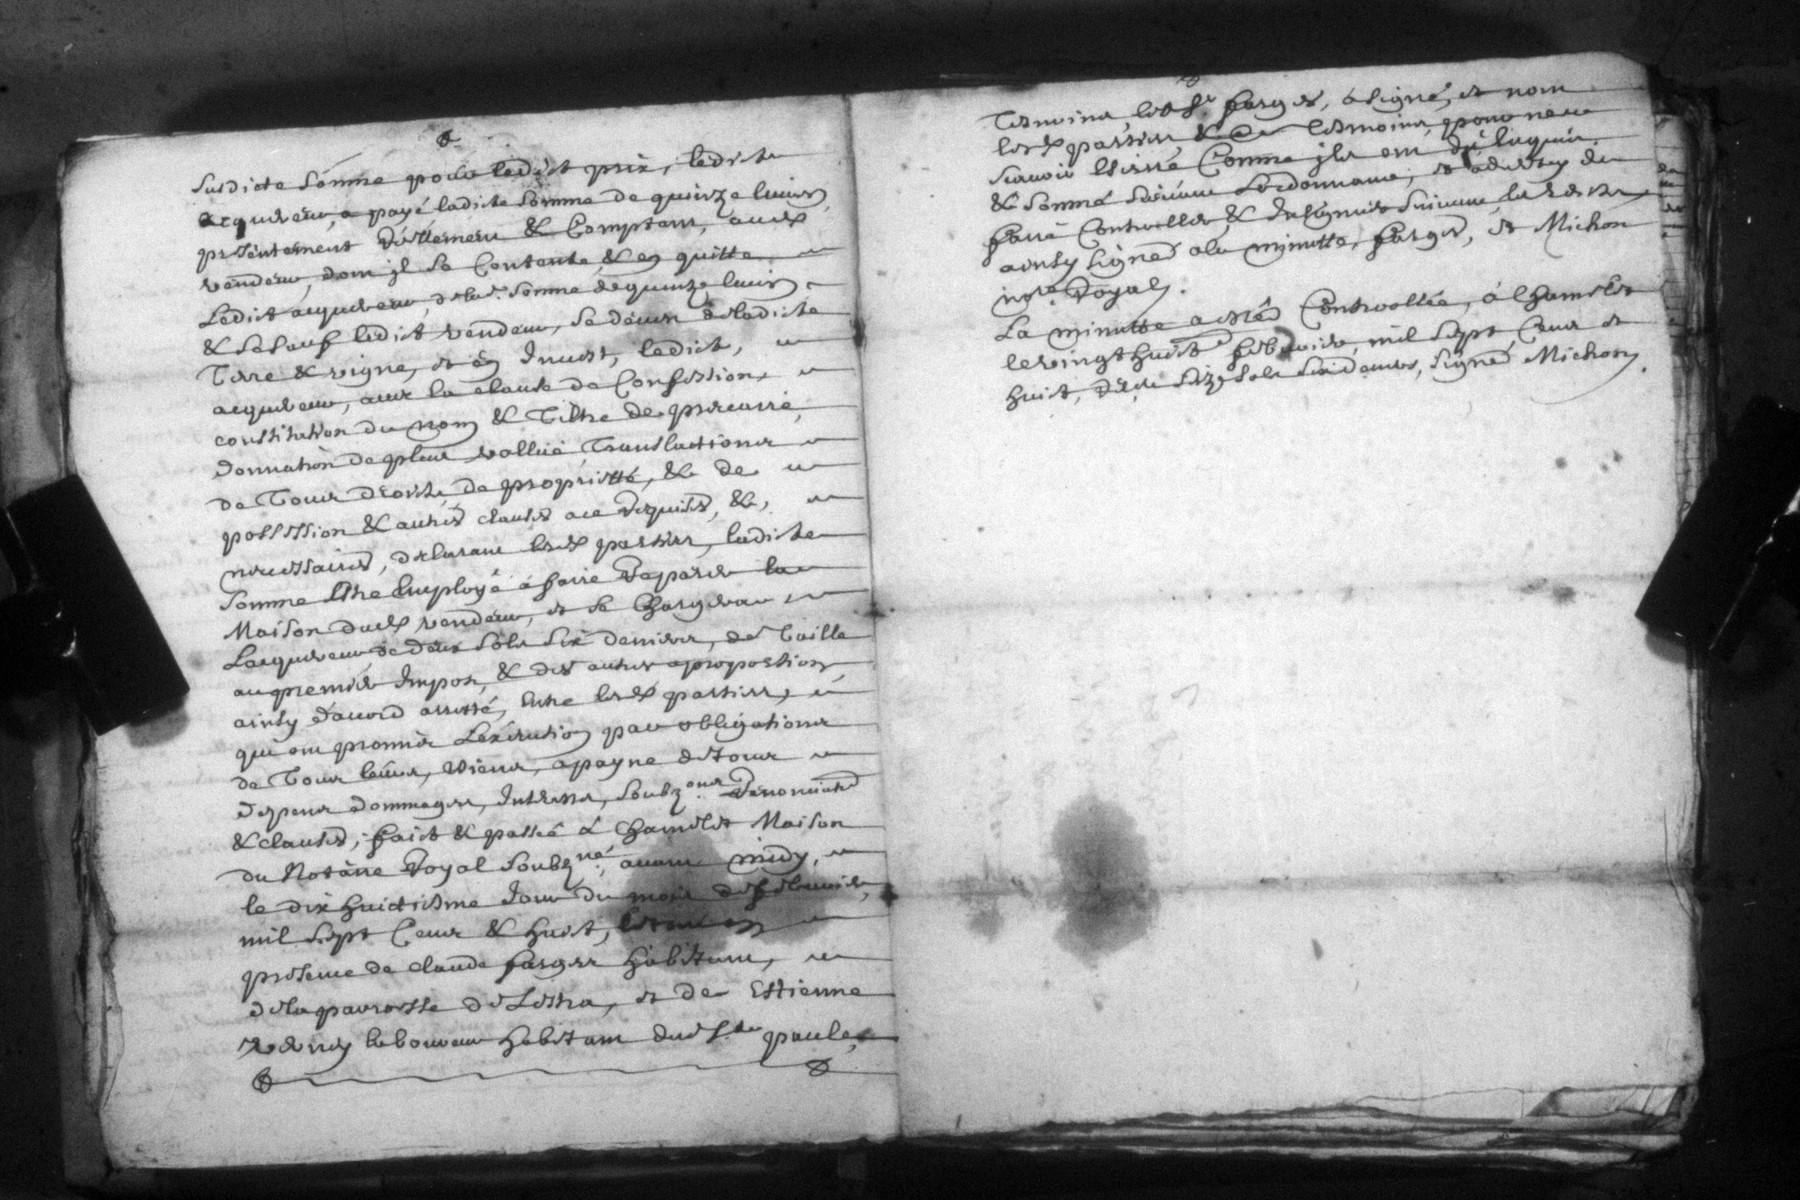 susdicte somme pour ledict prix, ledict
acquereur, a payé ladicte somme de quinze livres
presentement réellement & comptant, audt
vendeur, dont jl se contente & en quitte
Ledict acquereur, de lad. somme de quinze livres
& ledict vendeur, se devest de ladicte
Terre & vigne, et en Invest, ledict,
acquereur, avec la clause de Confession,
constitution du nom & Tiltre de precaire,
donnation de plus vallue Translactions
de Tous droicts de proprietté, & de
possession & autres clauses a ce requises, &,
necessaires, declarant lesd. parties, ladicte
somme Estre Employé á faire reparer la
Maison dudt vendeur, et se chargera
Lacquereur de deux sols six deniers, de Taille
au premier Impost, & des autres a proportion
ainsy d'acord arresté, Entre lesd. parties,
qui ont promis L'exécution par obligations
de Tous leurs, Biens, a payne de Tous
despens dommages, Interests, soubz.ons Renonciaõns
& clauses, faict & passé á Chamelet Maison
du Notaire Royal soubz.né, avant midy,
le dix huictiesme Jour du mois de febvrier,
mil sept Cens & huict, en
presence de claude farges habitant,
de la parroesse de Lestra, et de Estienne
laboureur habitant dud. Ste paule,
Tesmoins, led. Sr farges, a signé, et non
lesd. parties, & Tesmoins, pour ne
scavoir Escrire Comme jls ont dit Enquis
& sommé suivant Lordonnance, et adverty de
faire Controoller, & Insignuer suivant les Edicts
ainsy signé a la minutte, farges, et Michon
nore. Royal.
La minutte a esté Controollée, á Chamelet
le vingt huict febvrier, mil sept Cens et
huict, Reçu seize sols six deniers, signé Michon